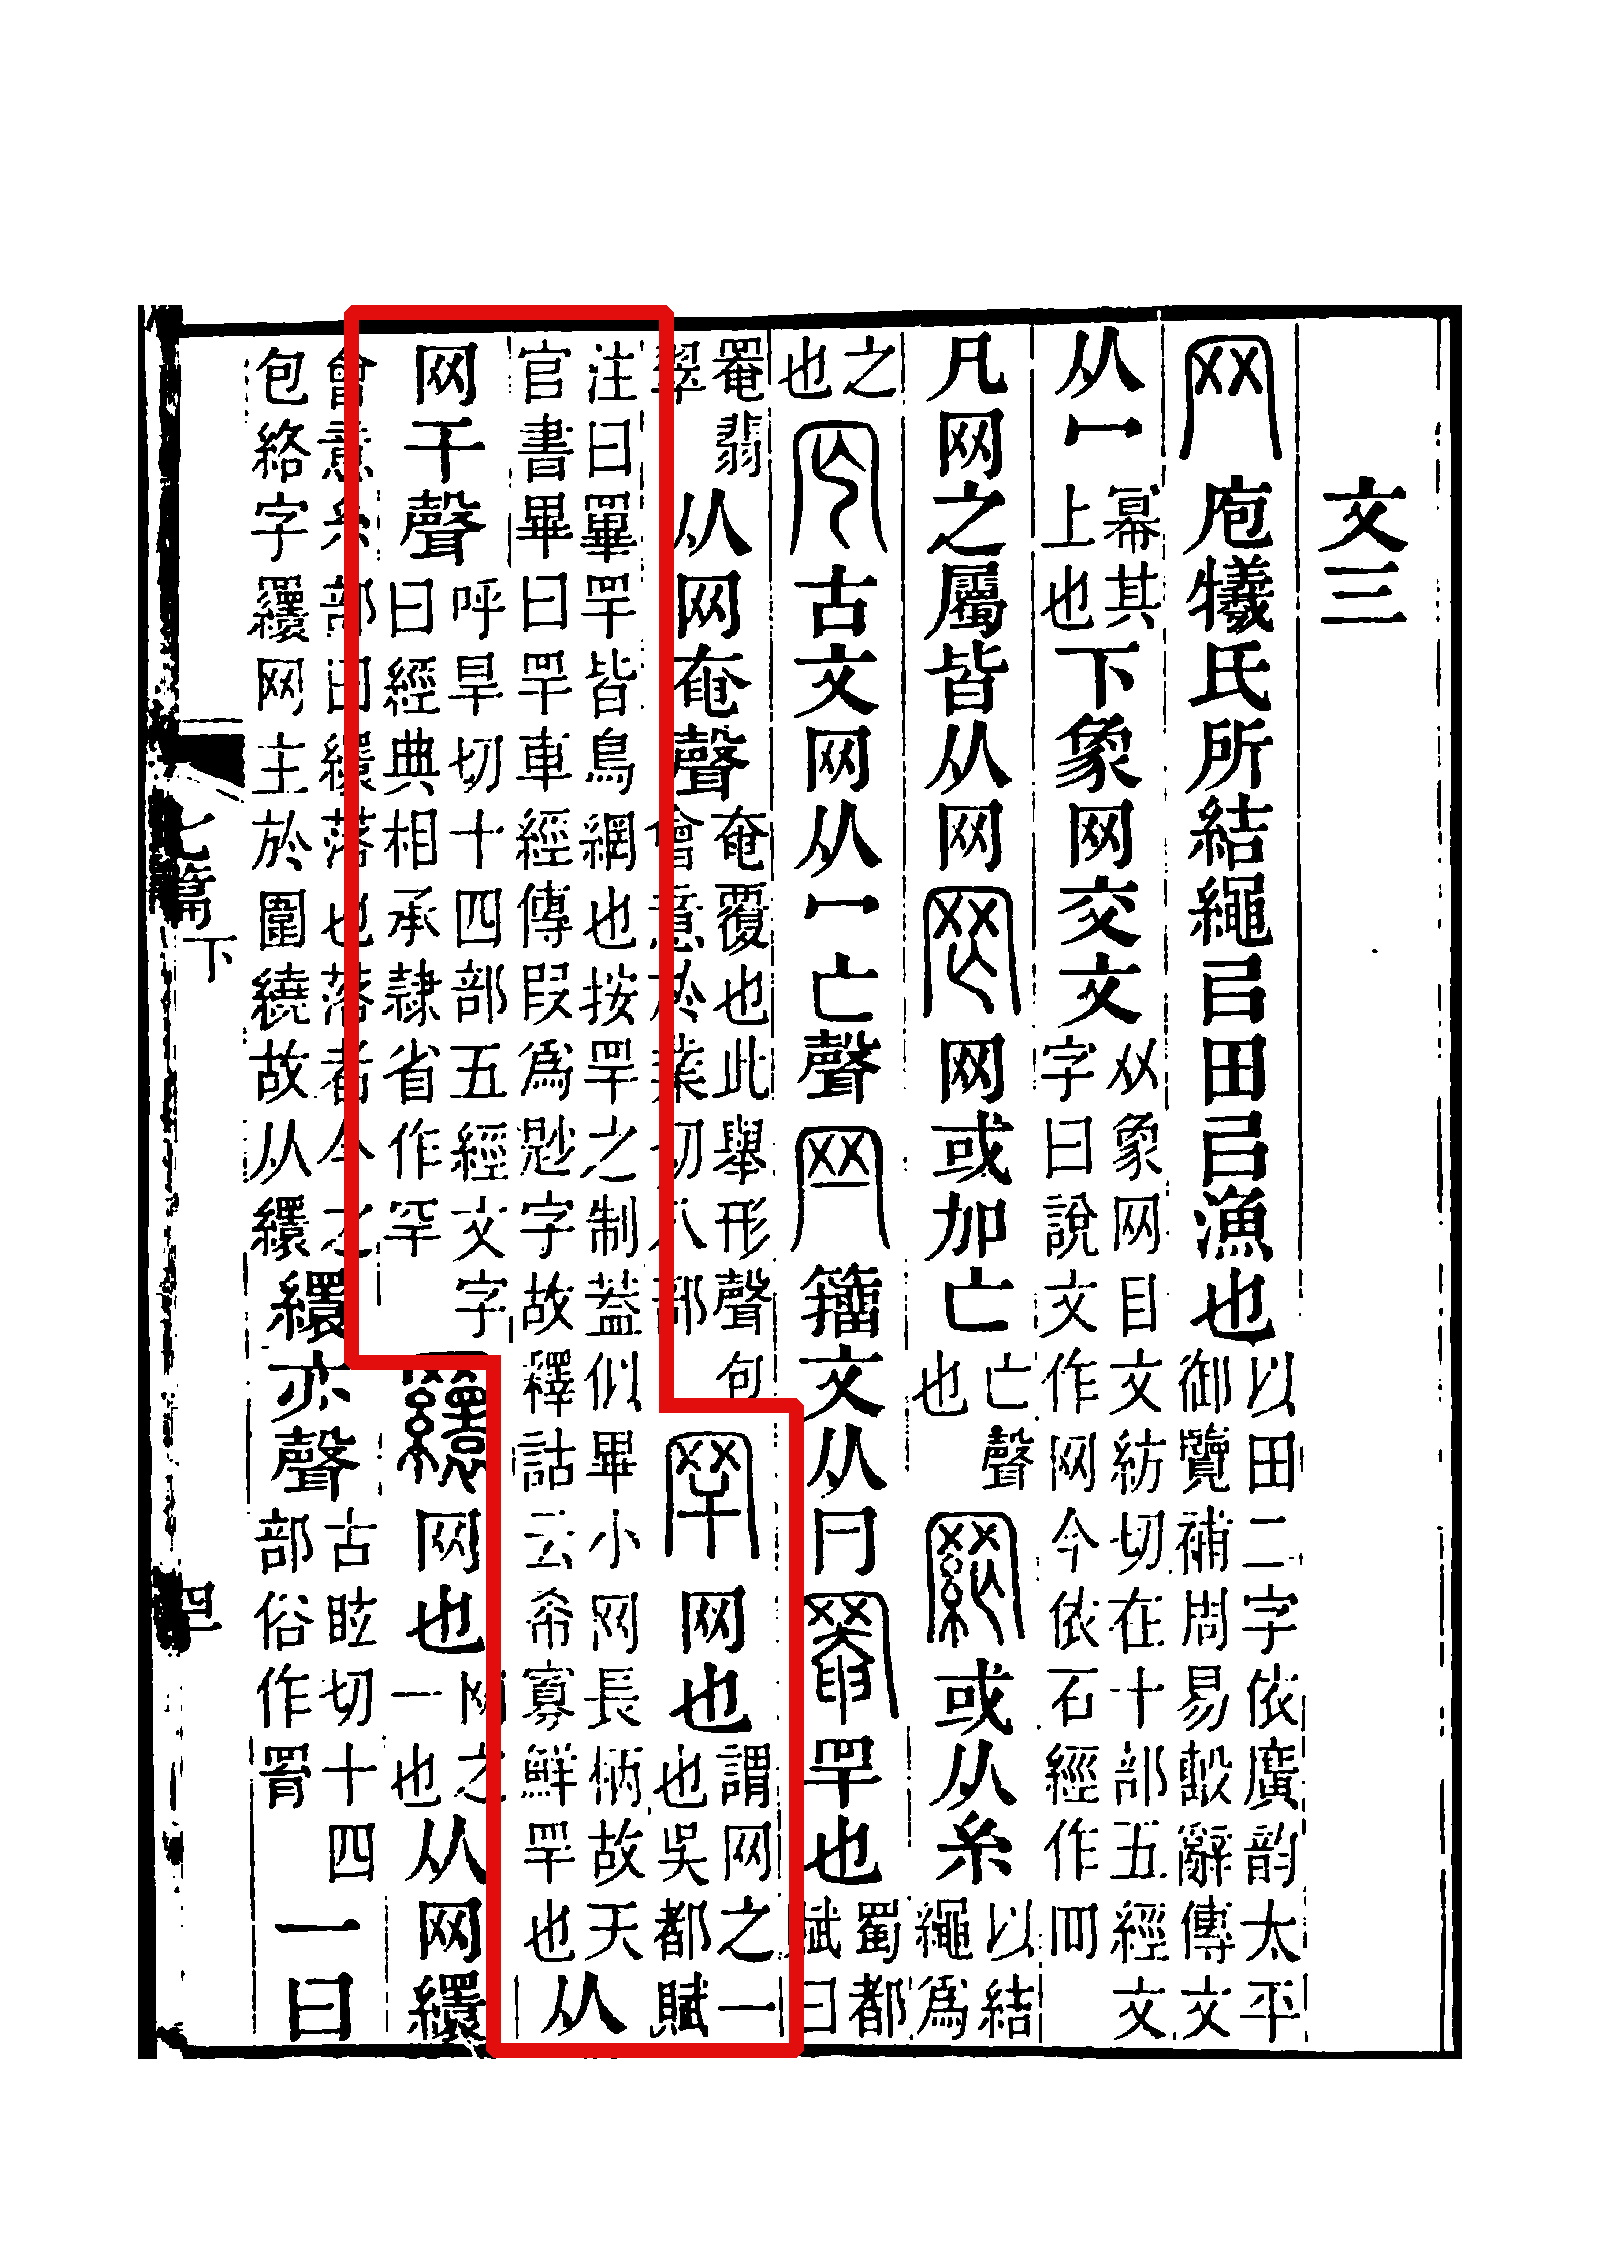 文三
网庖犧氏所結繩㠯田㠯漁也以田二字依廣韵太平御覽補周易毄辭傳文
从冖冪其上也下象网交文㸚象网目文紡切在十部五經文字曰說文作网今依石經作罒
凡网之屬皆从网罔网或加亡亡聲也網或从糸以結繩爲
之也𦉸古文网从冖亡聲𦉪籒文从冃罨罕也蜀都賦曰
罨翡翠从网奄聲奄覆也此舉形聲包會意於業切八部罕网也謂网之一也吳都賦
注曰罼罕皆鳥網也按罕之制蓋似畢小网長柄故天官書畢曰罕車經傳叚爲尠字故釋詁云希寡鮮罕也从
网干聲呼旱切十四部五經文字曰經典相承隷省作罕繯网也网之一也从网繯
會意糸部曰繯落也落者今之包絡字繯网主於圍繞故从繯繯亦聲古眩切十四部俗作罥一曰
七篇下